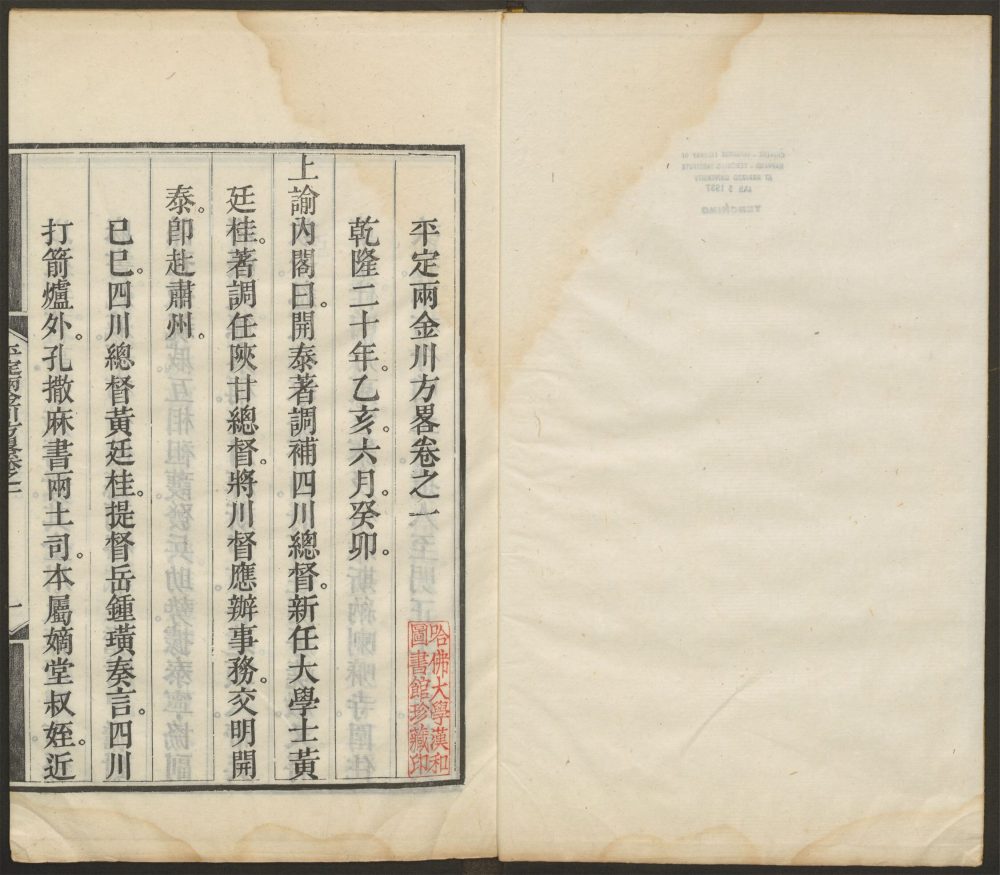 平定兩金川方畧卷之一
乾隆二十年。乙亥。六月。癸卯。
上諭內閣曰。開泰著調補四川總督。新任大學士黃
廷桂。著調任陝甘總督。將川督應辦事務。交明開
泰。卽赴肅州。
已巳。四川總督黃廷桂。提督岳鍾璜奏言。四川
打箭爐外。孔撒麻書兩土司。本屬嫡堂叔姪。近
平定兩金川方畧卷之一
一
哈佛大學漢和
圖書館珍藏印
CHINESE - JAPANESE LIBRARY OF
HARVARD - YENCHING INSTITUTE
AT HARVARD UNIVERSITY
JAN 5 1937